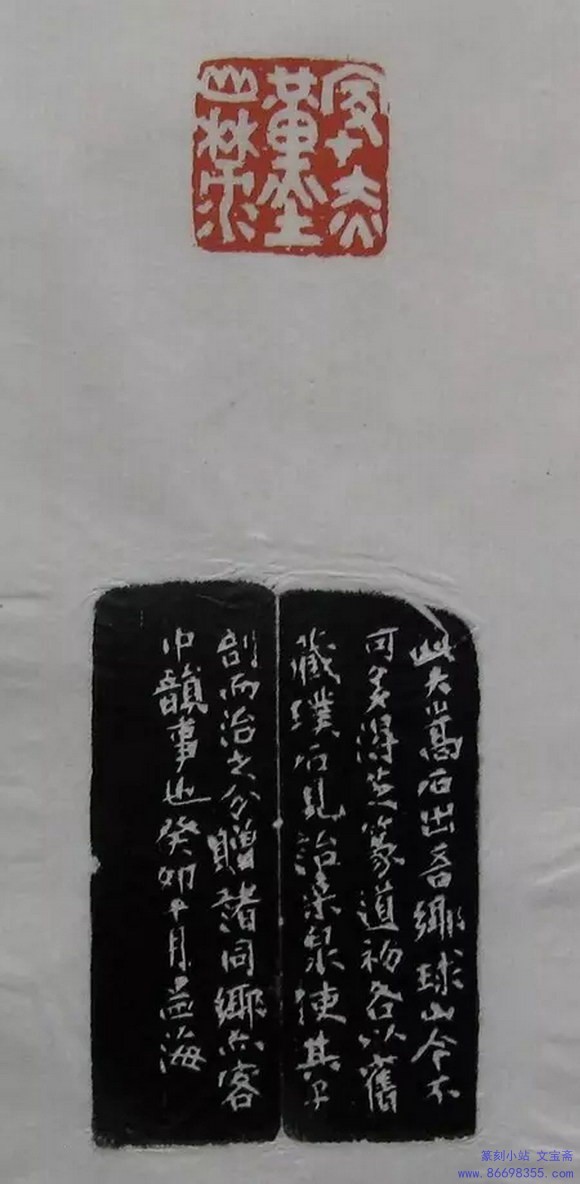 此大嵩石出吾鄉球山今不
可多得芝篆道初各以舊
藏璞石見詒使其子
剖而治之分贈諸同鄉亦客
中韻事也癸卯十月孟海
篆刻小站 文宝斋
www.86698355.com